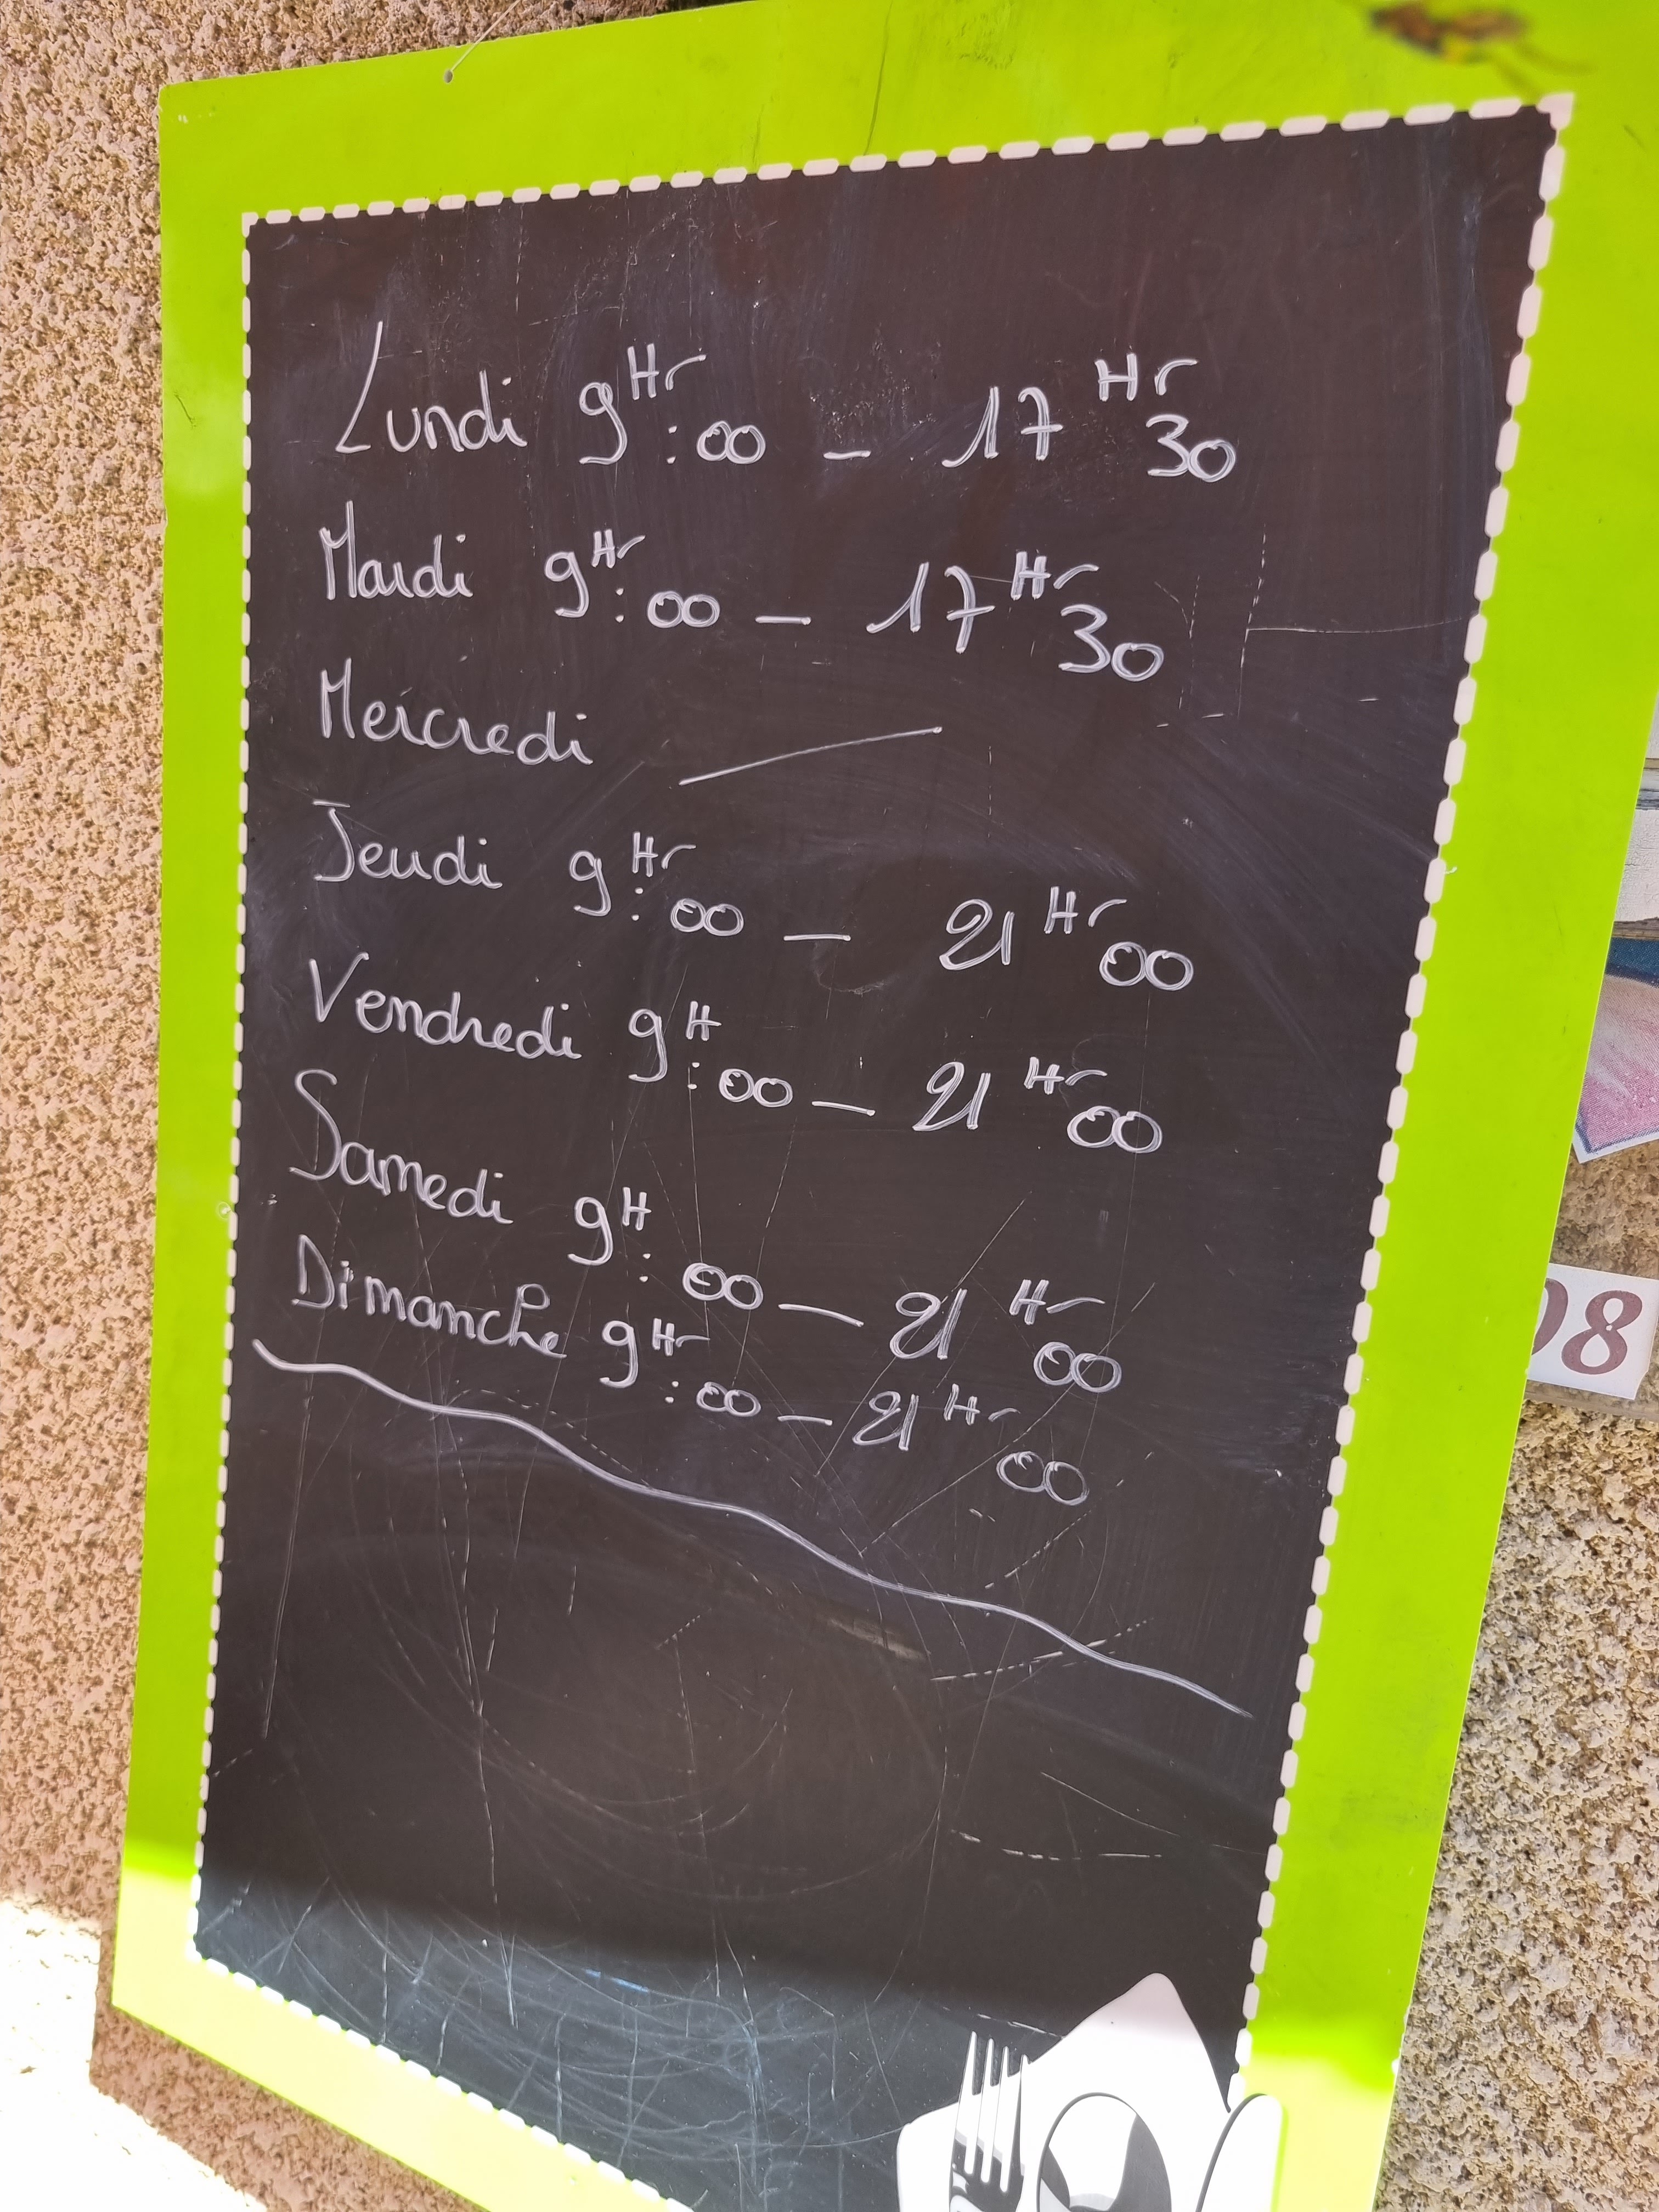 Lundi 9Hr:00 - 17Hr30
Mardi 9Hr:00 - 17Hr30
Mercredi —
Jeudi 9Hr:00 - 21Hr00
Vendredi 9H:00 - 21Hr00
Samedi 9H:00 - 21Hr00
Dimanche 9Hr:00 - 21Hr00
98